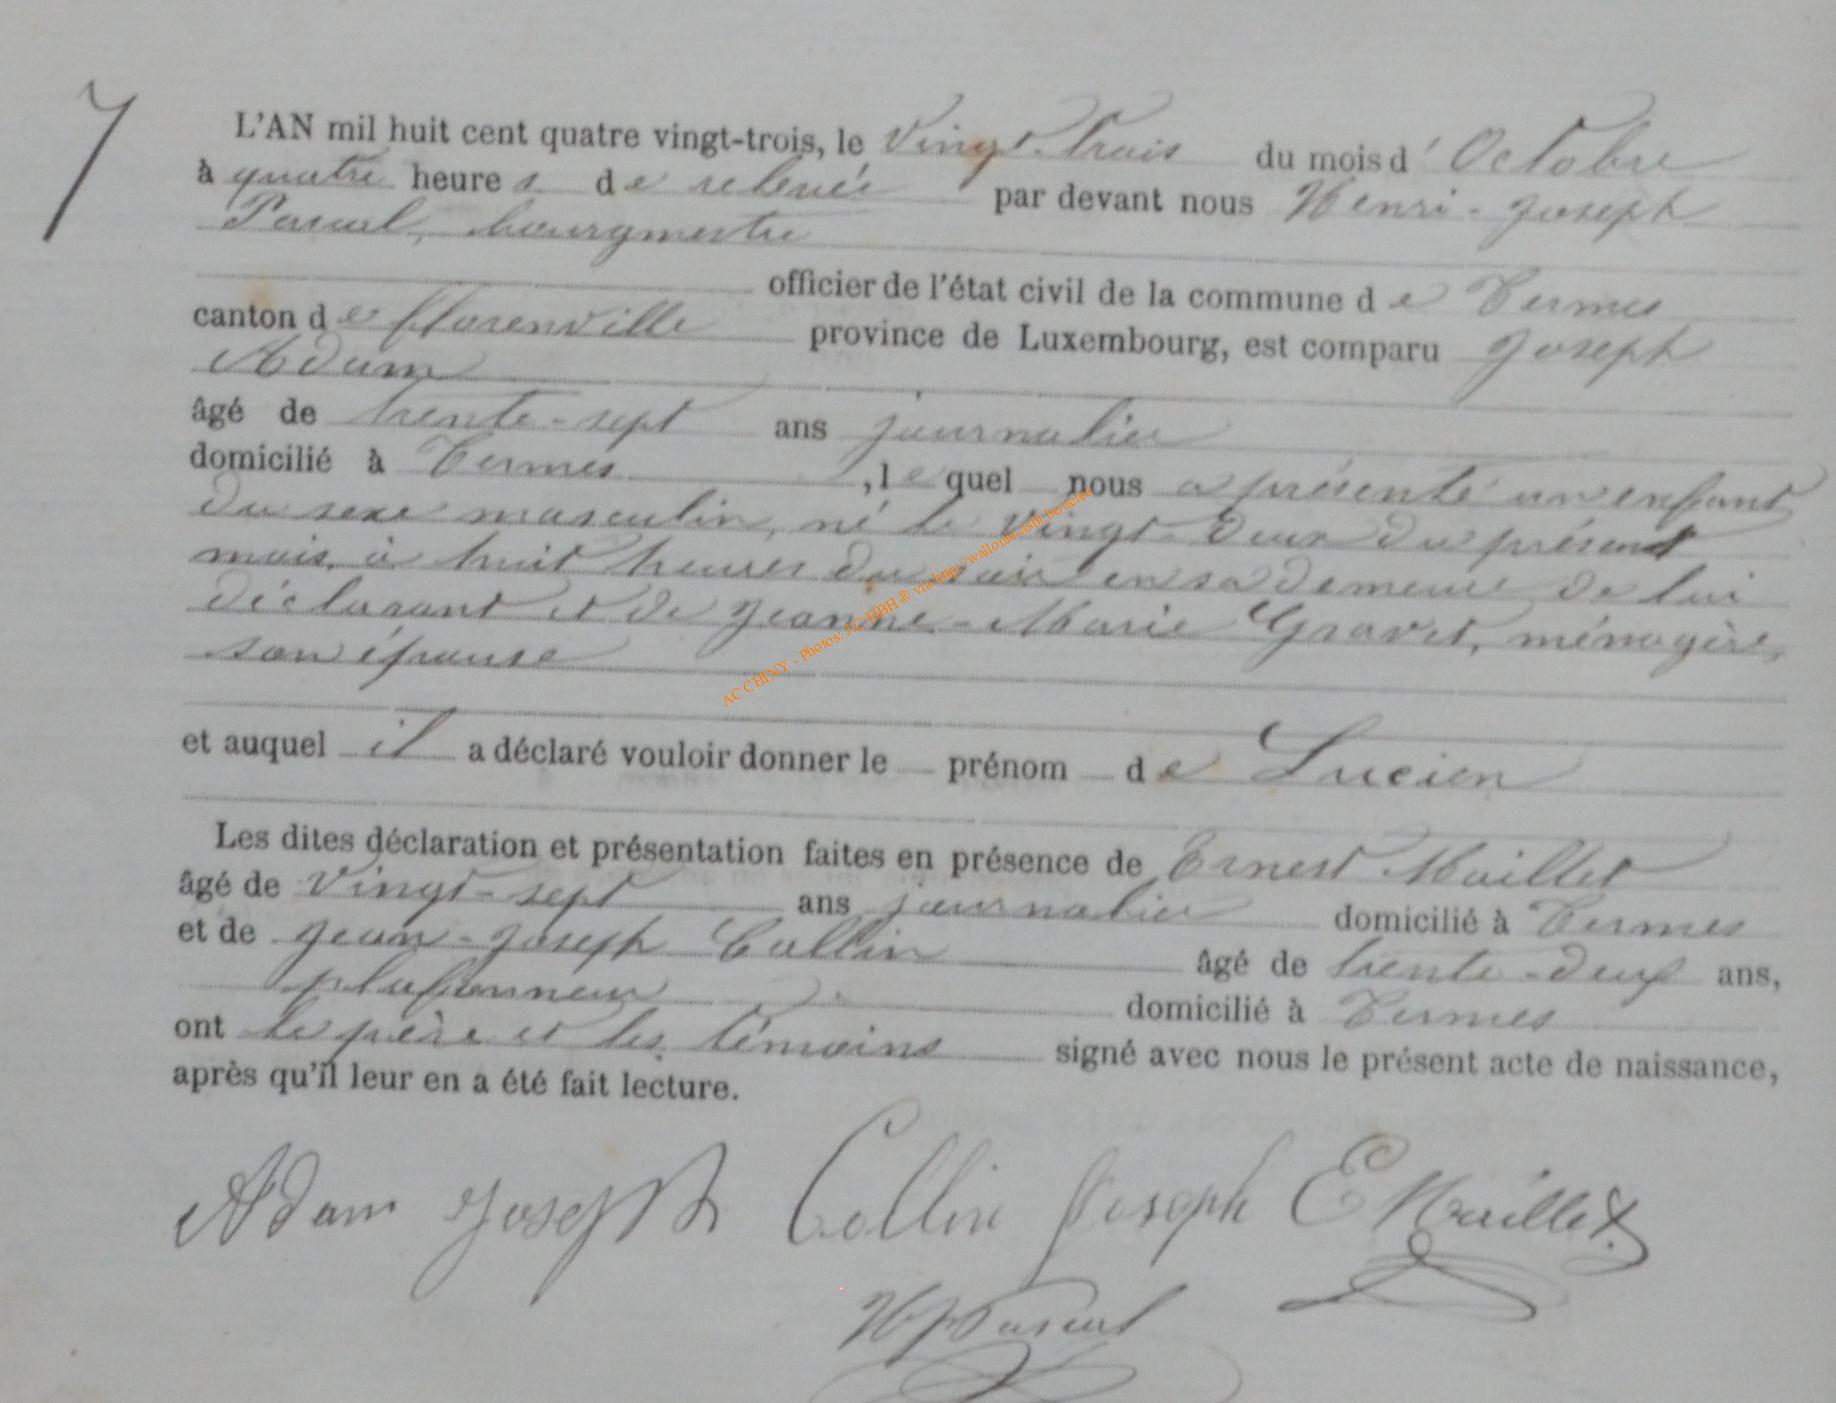 7
L'AN mil huit cent quatre vingt-trois, le Vingt-trois du mois d'Octobre
à quatre heures de relevée par devant nous Henri-Joseph
Pascal, bourgmestre
officier de l'état civil de la commune de Termes
canton de Florenville province de Luxembourg, est comparu Joseph
Adam
âgé de trente-sept ans journalier
domicilié à Termes, lequel nous a présenté un enfant
du sexe masculin, né le vingt-deux du présent
mois, à huit heures du soir en sa demeure de lui
déclarant et de Jeanne-Marie Gravet, ménagère,
son épouse
et auquel il a déclaré vouloir donner le prénom de Lucien
Les dites déclaration et présentation faites en présence de Ernest Maillet
âgé de Vingt-sept ans journalier domicilié à Termes
et de Jean-Joseph Collin âgé de trente-deux ans,
plafonneur domicilié à Termes
ont le père et les témoins signé avec nous le présent acte de naissance,
après qu'il leur en a été fait lecture.
Adam Joseph Collin Joseph E Maillet
HJ Pascal
AC CHINY - Photos: J.C. HBH ® via http://wallonia-asbl.be/actes